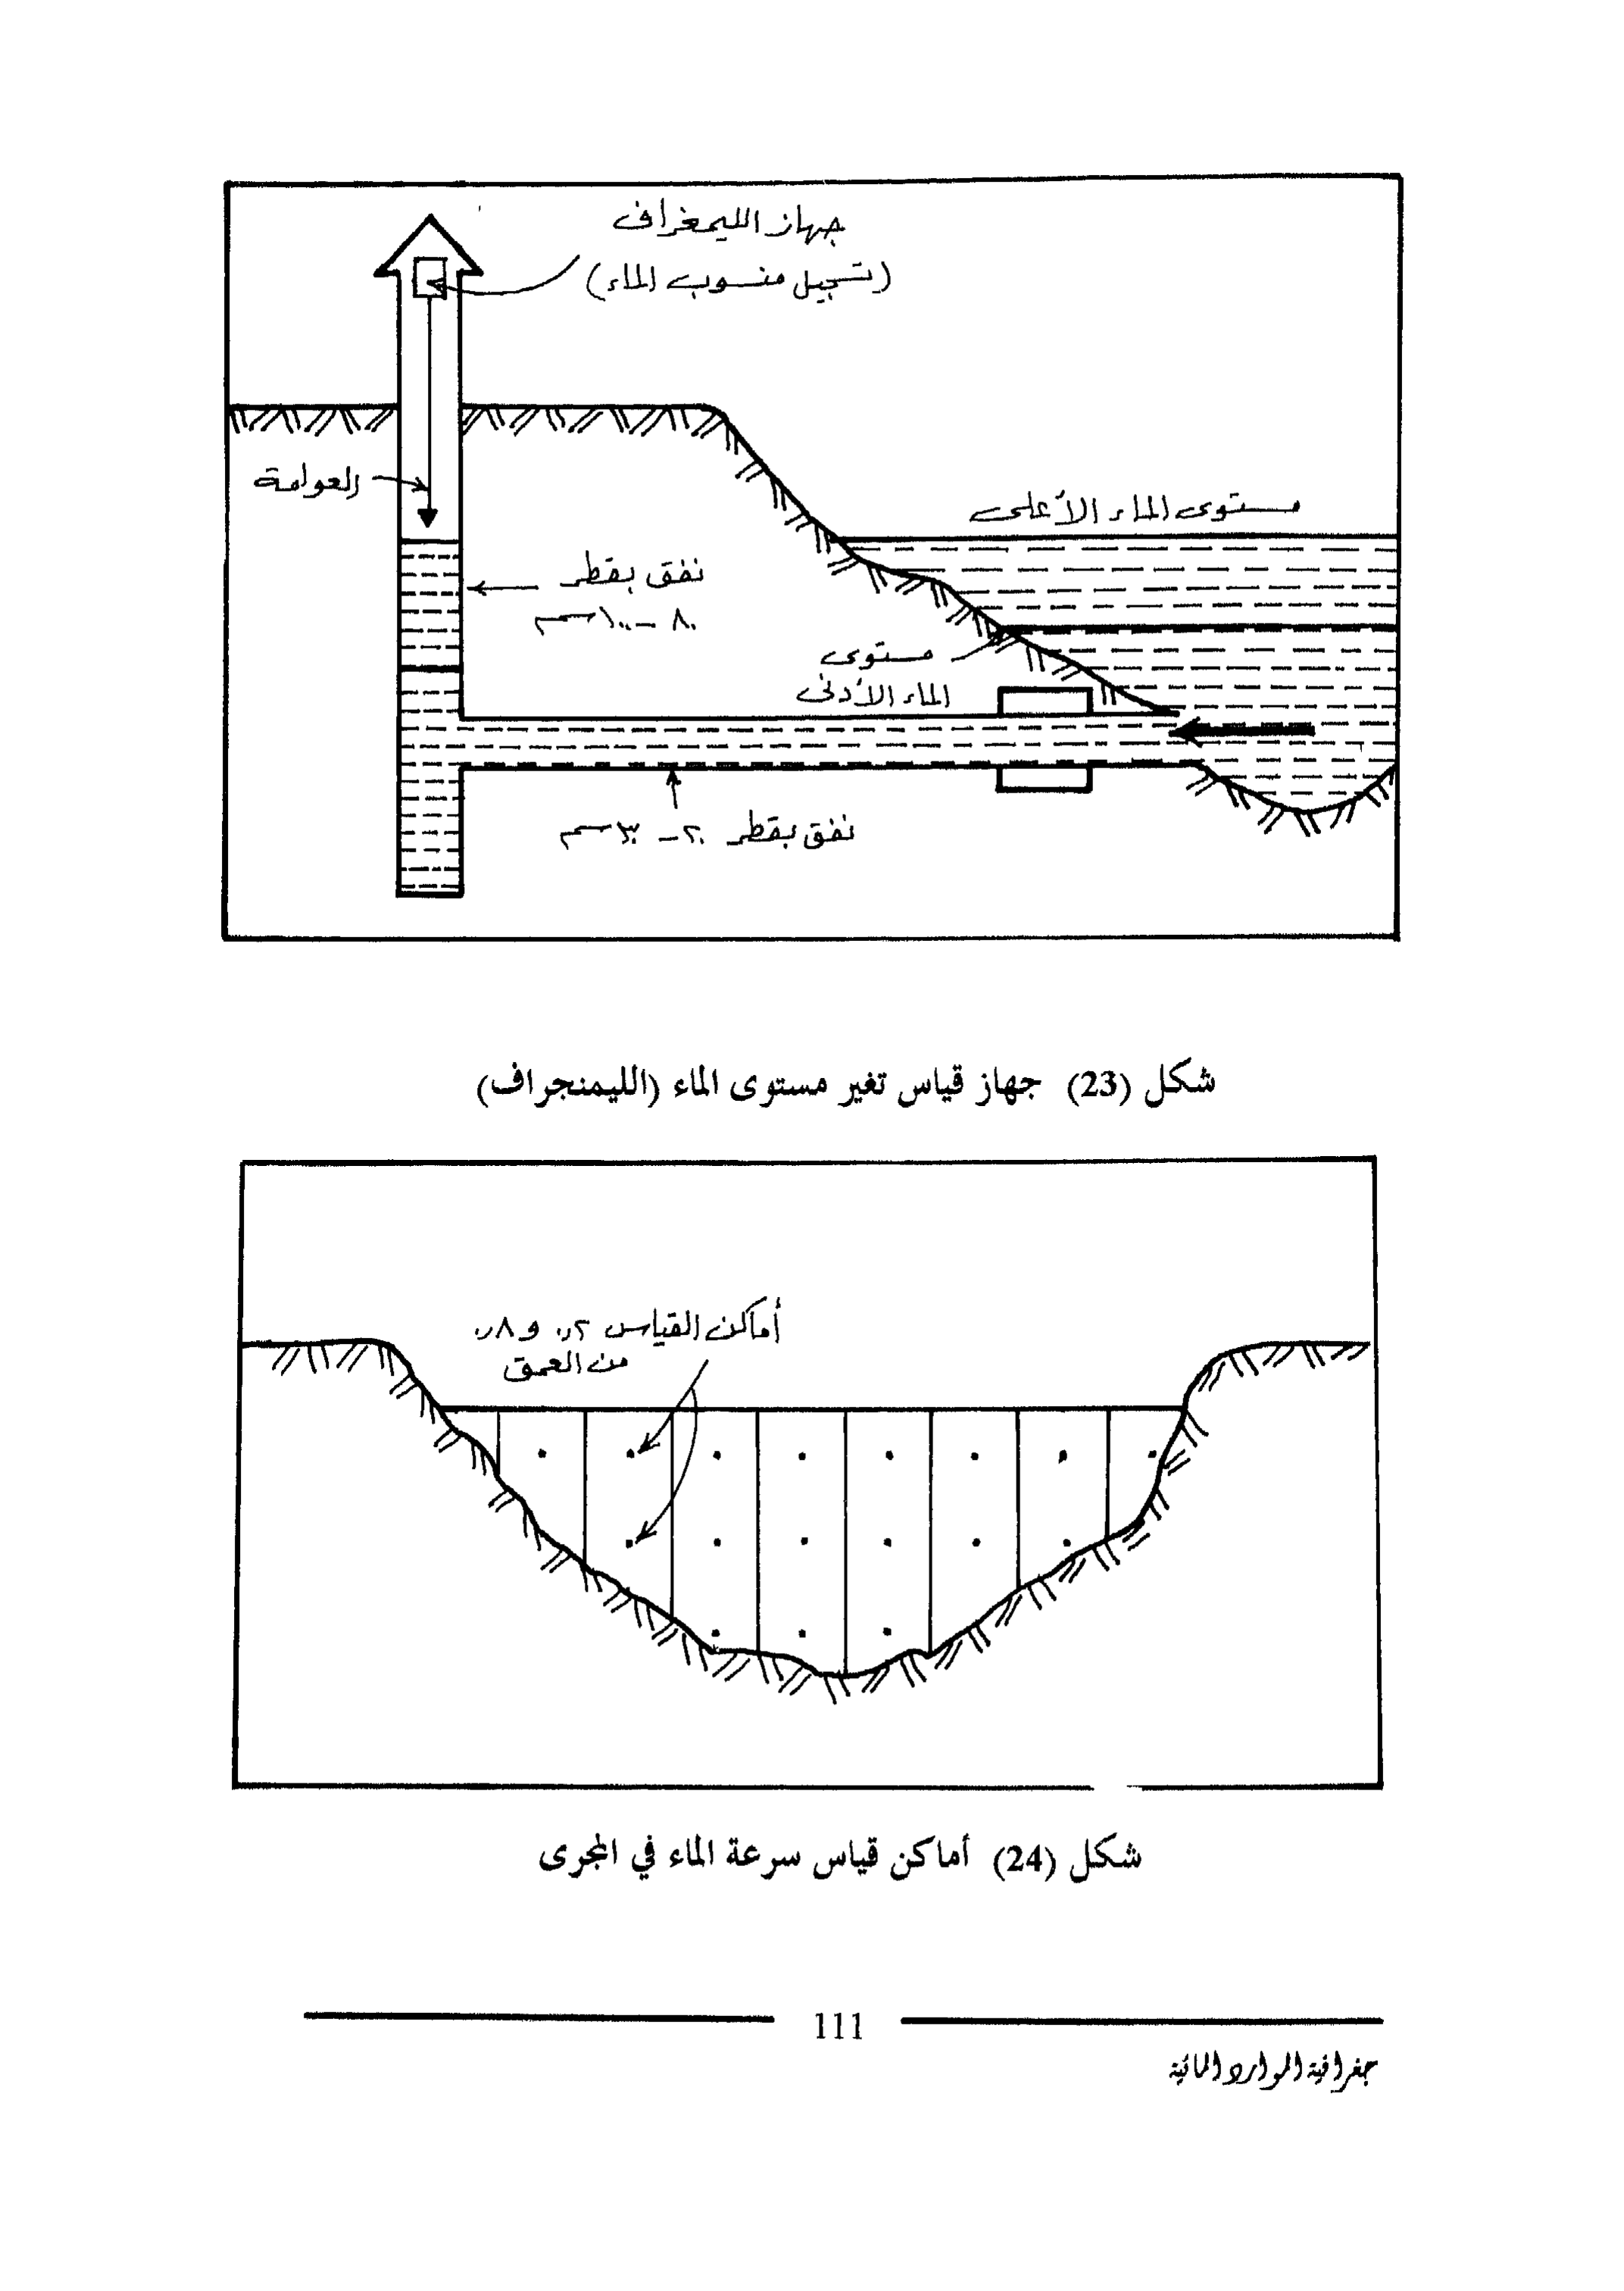 جهاز الليمغراف
(تسجيل منسوب الماء)
العوامة
مستوى الماء الأعلى
نفق بقطر
٨٠ - ١٠٠ سم
مستوى
الماء الأدنى
نفق بقطر ٢٠ - ٣٠ سم
شكل (23) جهاز قياس تغير مستوى الماء (الليمنجراف)
أماكن القياس ٢ر٠ و ٨ر٠
من العمق
شكل (24) أماكن قياس سرعة الماء في المجرى
111
جغرافية الموارد المائية